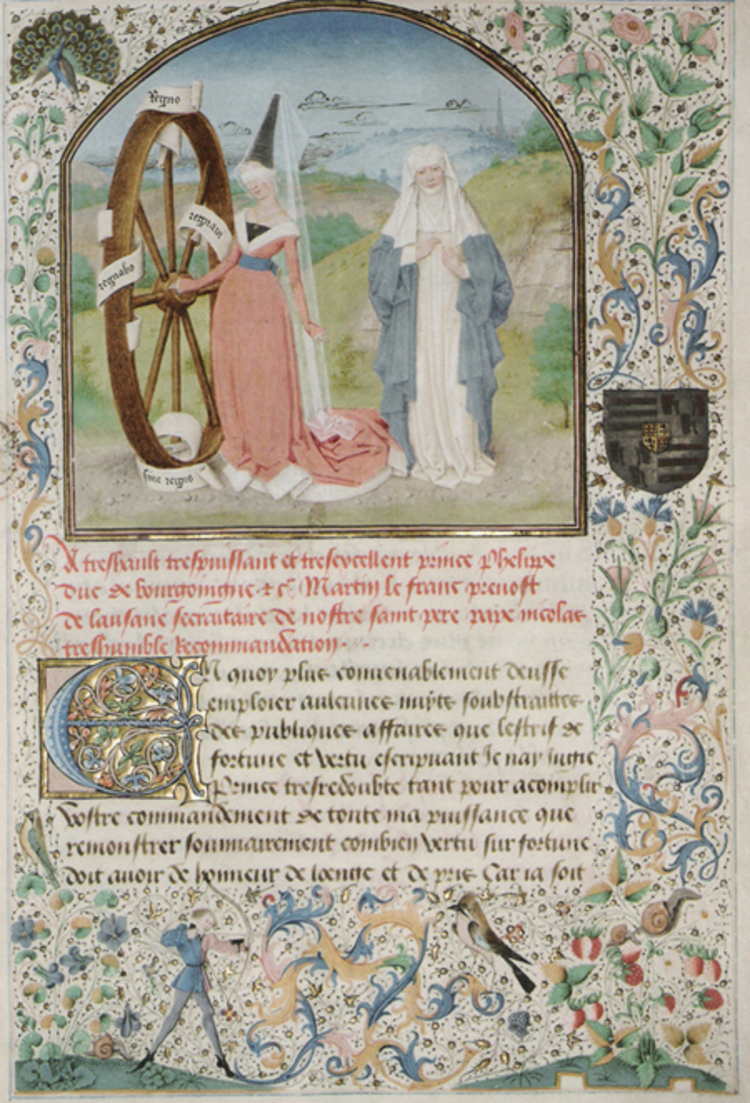 regno
regnavi
regnabo
sine regno
A treshault trespuissant et tresexcellent prince Phelippe
duc de bourgoingne & c͂ Martin le franc prevost
de lausane secretaire de nostre saint pere pape nicolas
treshumble Recommandation
En quoy plus convenablement deusse
emploier aulcunes nuyts soubstraittes
des publiques affaires que lestrif de
fortune et vertu escripuant Je nay Jugie
Prince tresredoubte tant pour acomplir
vostre commandement de toute ma puissance que
remonstrer sommairement combien vertu sur fortune
doit avoir de honneur de loenge et de pris Car ia soit